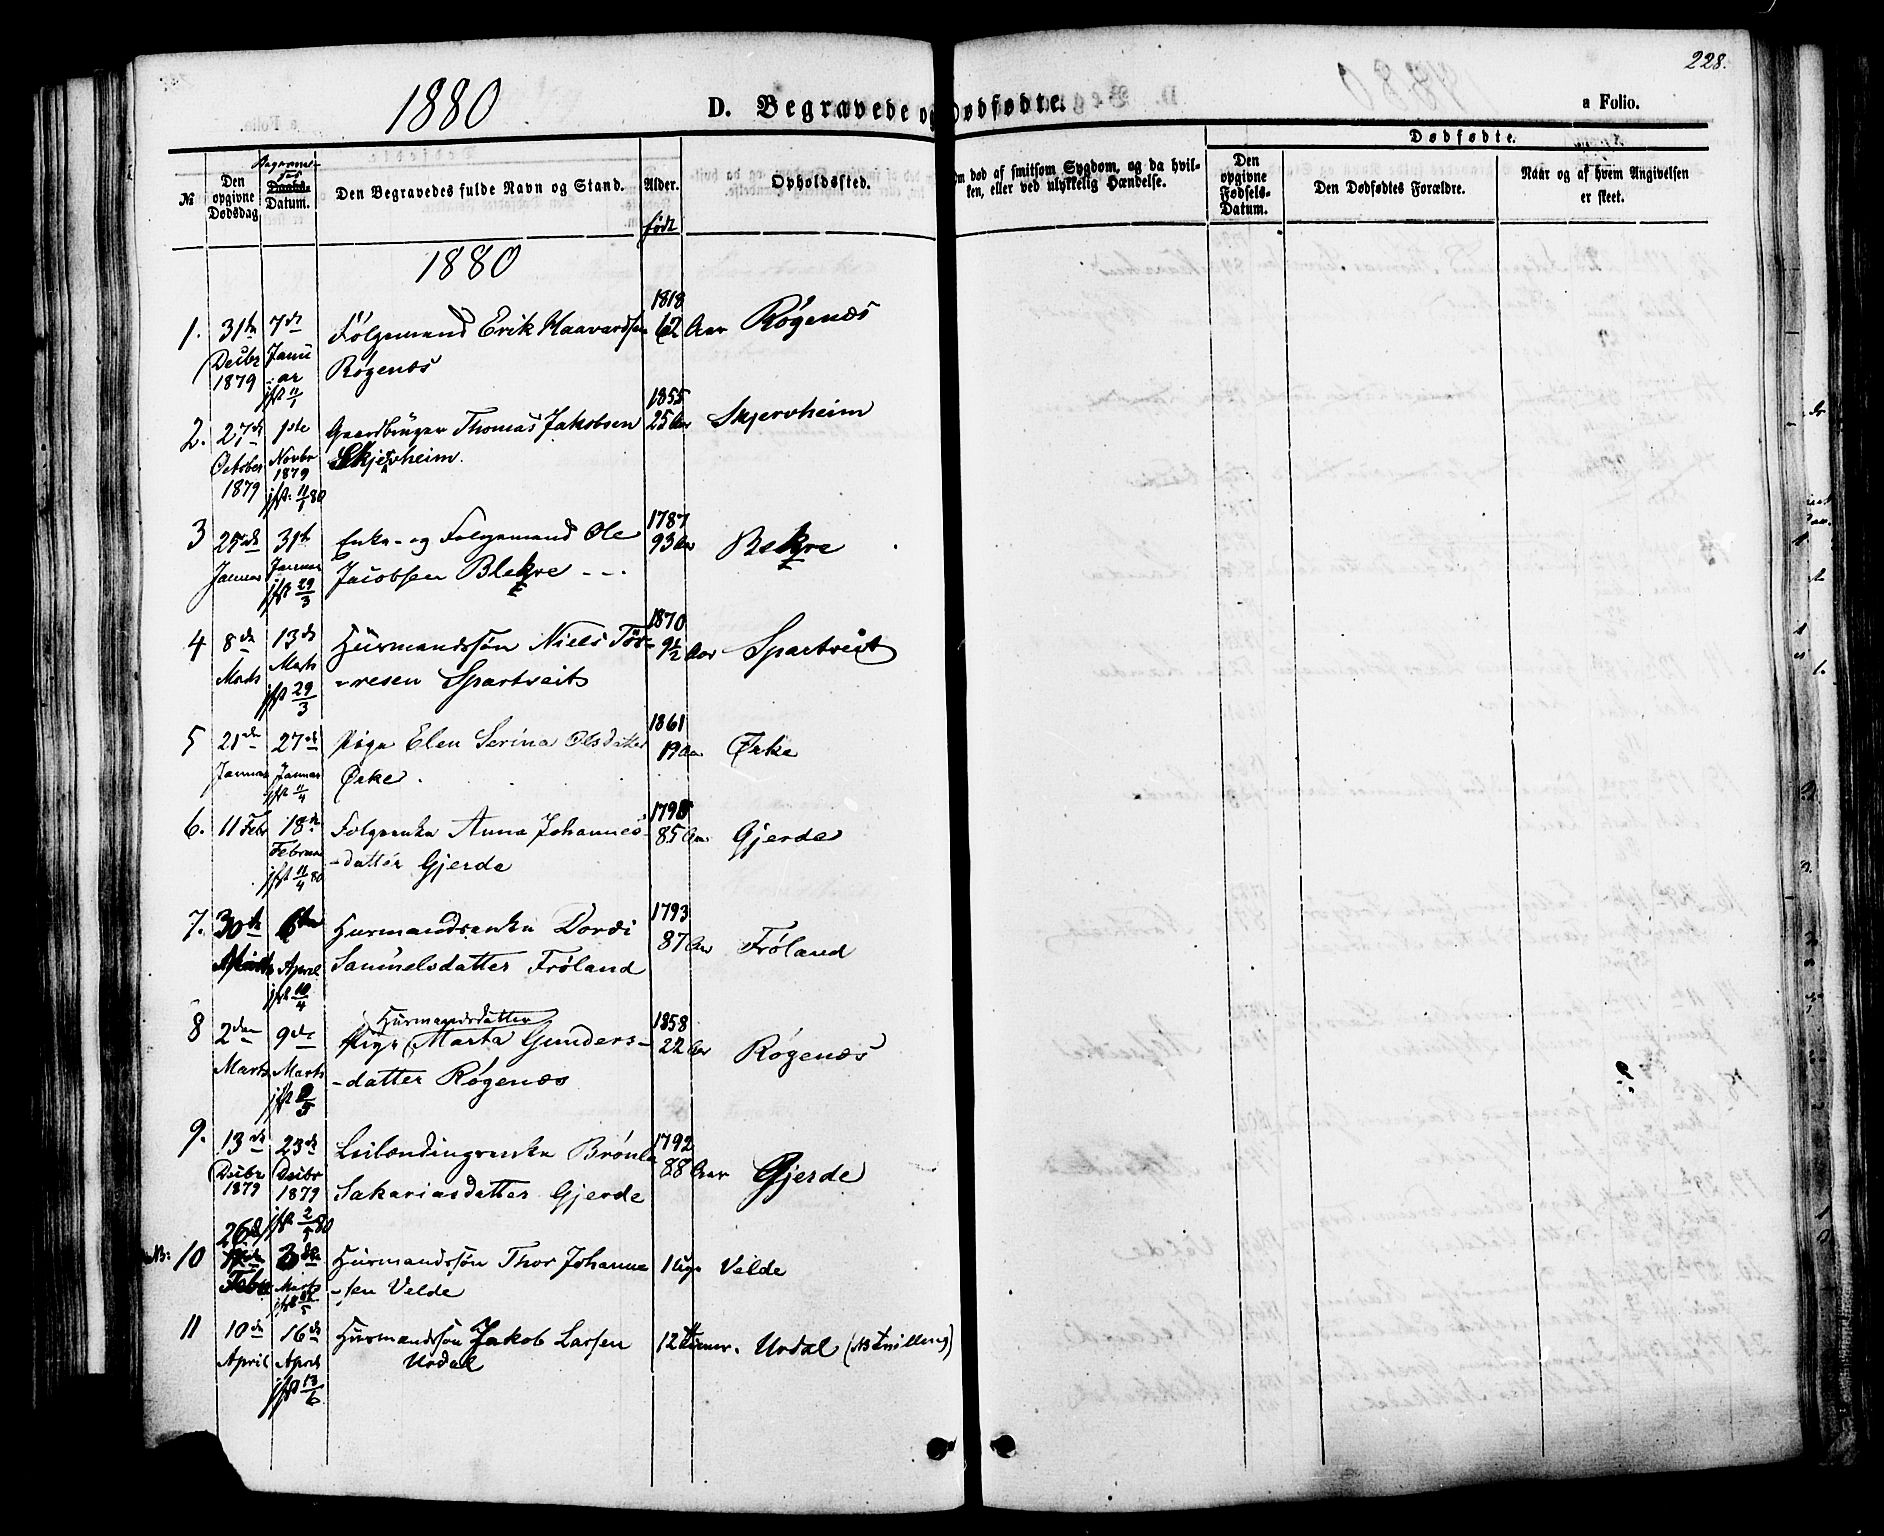 228.
1880
D. Begravede og Dødfødte.
a Folio.
Dødfødte.
№
Den opgivne Dødsdag
Begravelses
Daabs-
Datum.
Den Begravedes fulde Navn og Stand.
Alder.
født
Opholdssted.
Om død af smitsom Sygdom, og da hvil-
ken, eller ved ulykkelig Hændelse.
Den opgivne Fødsels-Datum.
Den Dødfødtes Forældre.
Naar og af hvem Angivelsen
er skeet.
1880
1818
1. 31te 7de Følgemand Erik Haavardsen 62 Aar Røgenæs
Decbr Janu Røgenæs
1879 -ar
jfst 11/1
1855
2. 27de 1ste Gaardbruger Thomas Jakobsen 25 Aar Skjervheim
October Novbr Skjervheim.
1879 1879
jfst. 11/1 80
1787
3 25de 31te Enke- og Folgemand Ole 93 Aar Blekre
Januar Januar Jacobsen Blekre
jfst 29/3
1870
4 8de 13de Husmandssøn Niels Tør- 9½ Aar Spartveit
Marts Marts -resen Spartveit
jfst 29/3
1861
5 21de 27de Pige Elen Serina Olsdatter 19 Aar Ørke
Januar Januar Ørke.
jfst 11/4
6. 11 Febr 18de Folgeenke Anna Johannes- 85 Aar Gjerde
Februar -datter Gjerde
jfst 11/4 80
1793
7. 30te 6te Husmandsenke Dordi 87 Aar Frøland
Marts April Samuelsdatter Frøland
jfst 10/4
Husmandsdatter 1858
8 2den 9de Pige Marta Gunders- 22 Aar Røgenæs
Marts Marts -datter Røgenæs
jfst
1792
9. 13de 23de Leilændingsenke Brønla 88 Aar Gjerde
Decbr Decbr Sakariasdatter Gjerde
1879 1879
jfst 2/5 80
26de
NB: 10 3de Husmandssøn Thor Johanne 1 Uge Velde
Febr Marts -sen Velde
jfst
11 10de 16de Husmandssøn Jakob Larsen 12 Timer. Urdal (NB Tvilling)
April April Urdal
jfst 13/6